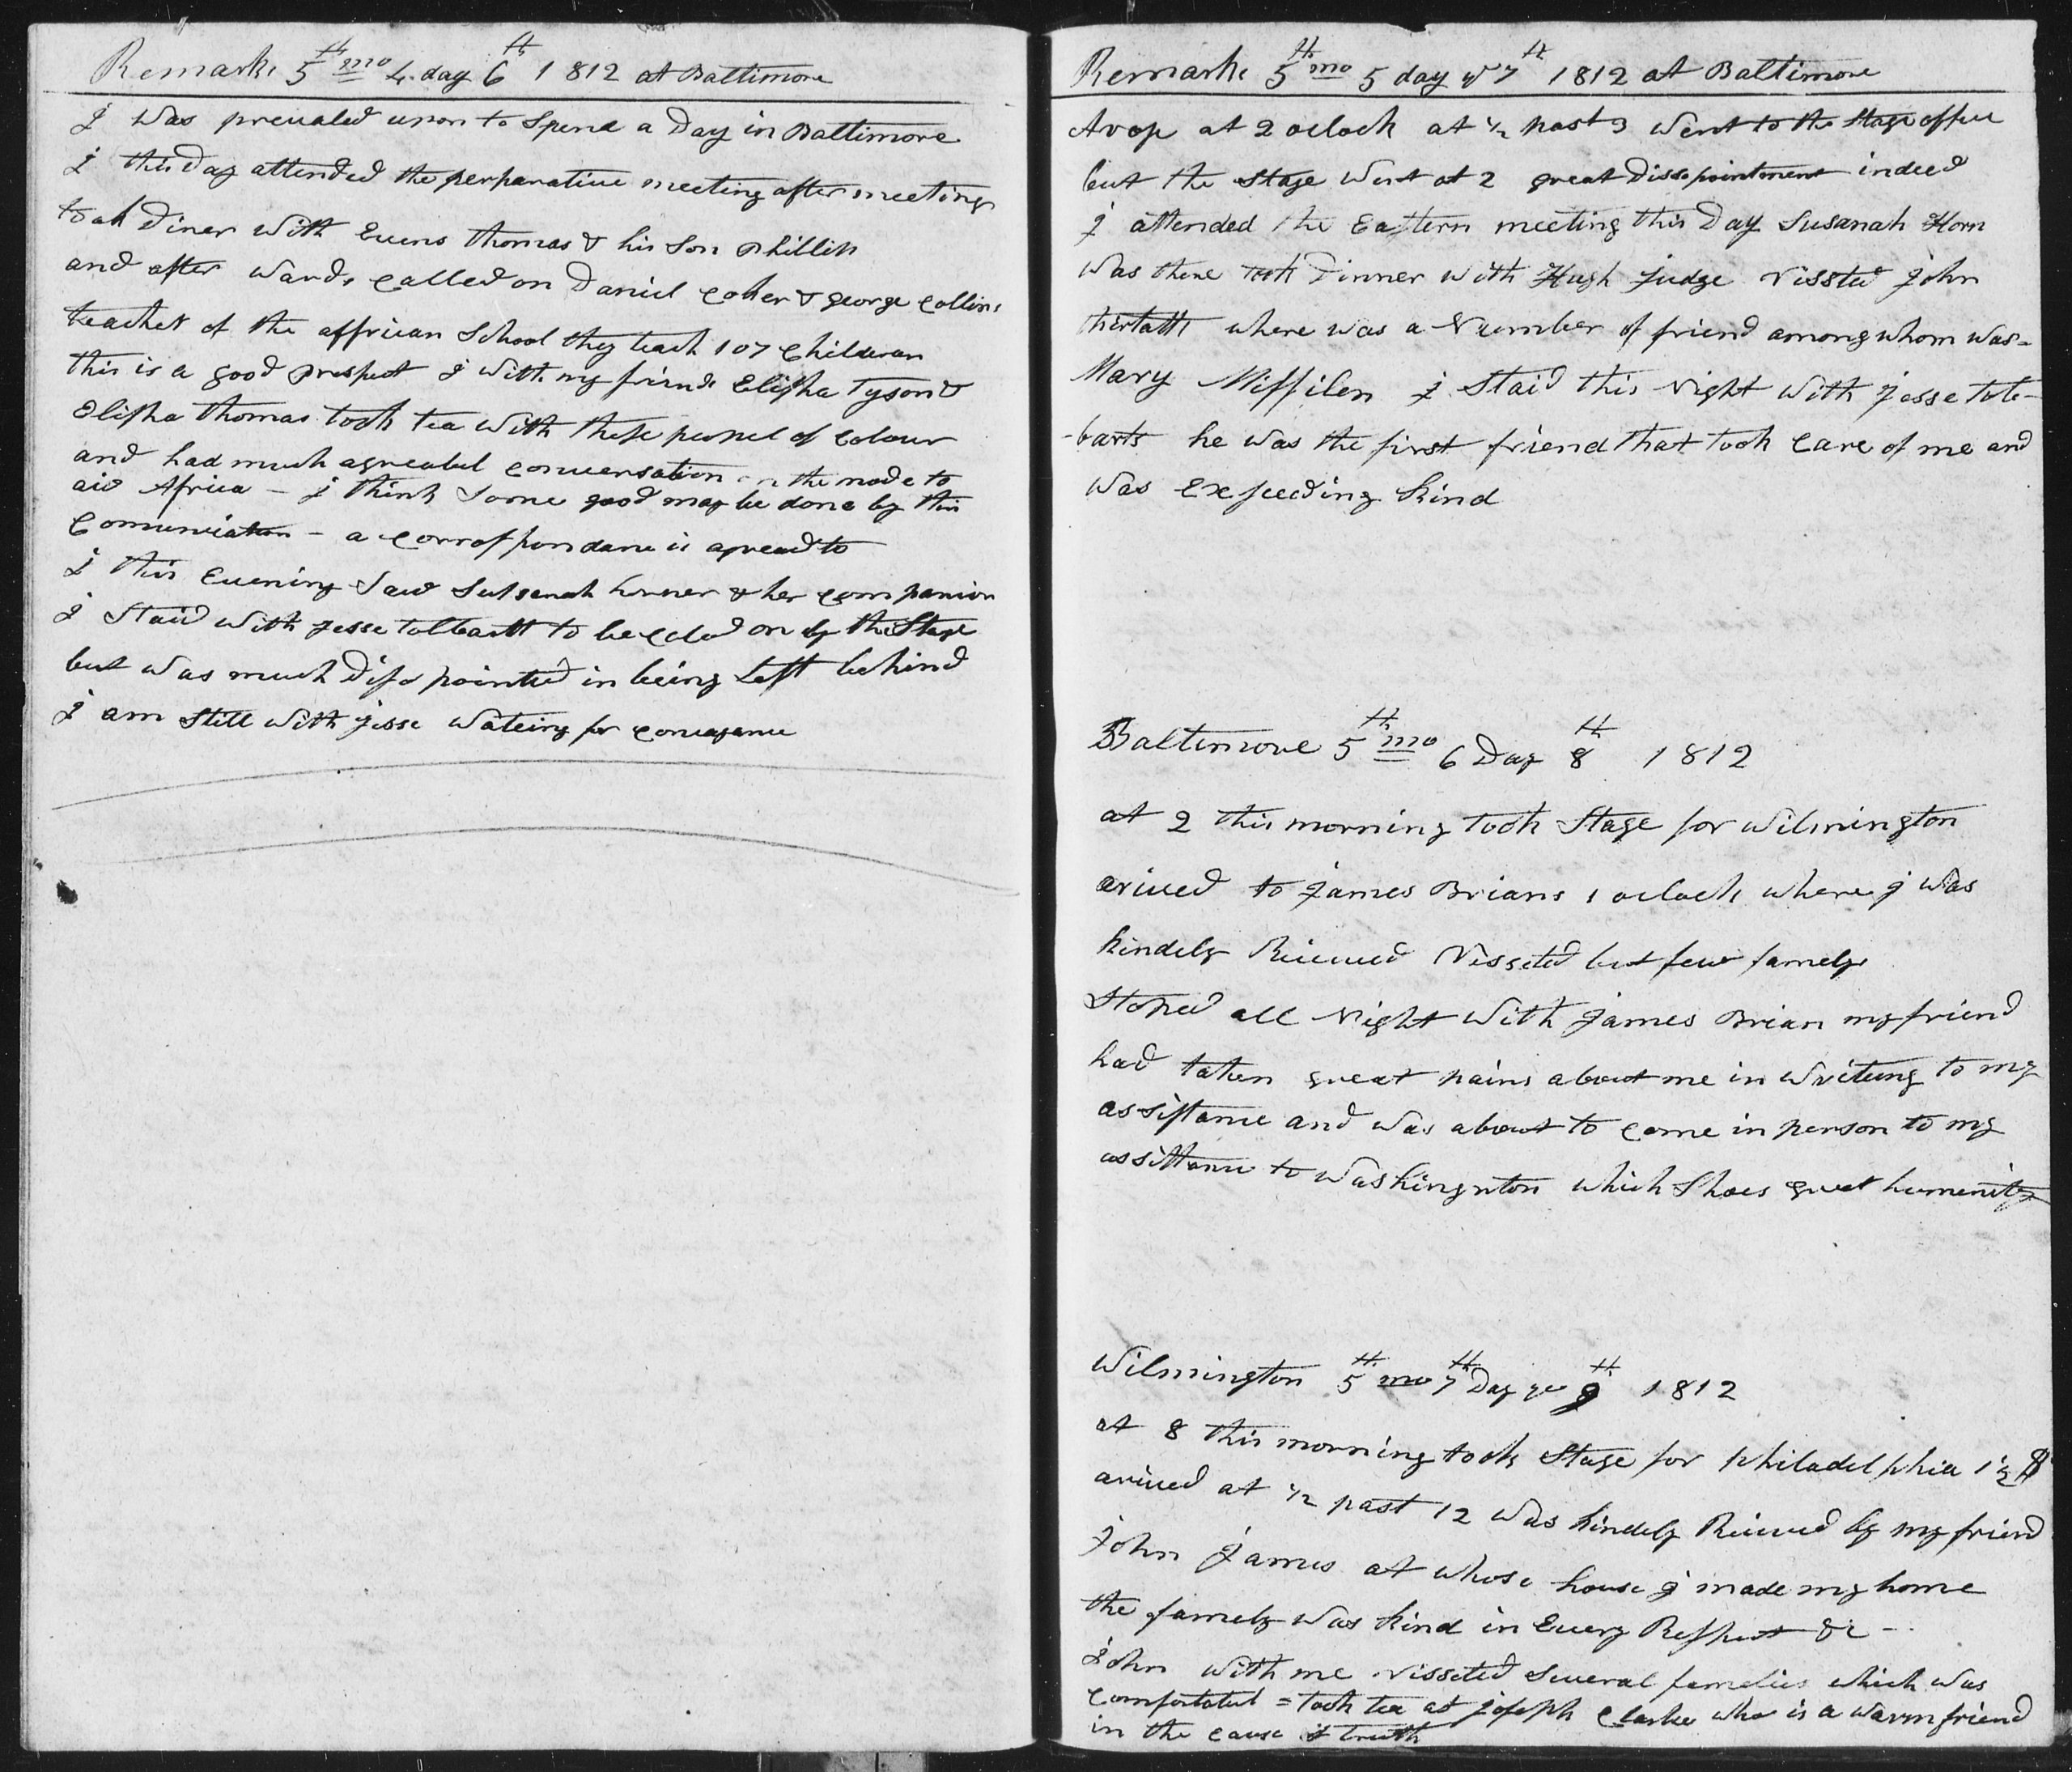 Remarks 5th mo 4 day 6th 1812 at Baltimore
I Was prevaled upon to Spend a Day in Baltimore
I this Day attended the perparative meeting after meeting
took Diner With Evens thomas & his Son Phillip
and after wards Called on Daniel Coker & george Collins
teacher of the affrican School they teach 107 Childeran
this is a good prospect I with my friends Elisha Tyson &
Elisha thomas took tea With these peopel of Colour
and had much agreabel conversation on the mode to
aid Africa – I think Some good may be done by this
Comunication – a Corrospondance is agread to
I this Evening Saw Susanah horner & her Companion
I Staid with Jesse tolbartt to be Caled on by the Stage
but was much Disapointed in being Left behind
I am Still With Jesse Wateing for Conveyance
Remarks 5th mo 5 day ye 7th 1812 at Baltimore
Arose at 2 oclock at ½ past 3 Went to the Stage office
but the Stage Went at 2 great Dissapointment indeed
I attended the Eastern meeting this Day Susanah Horn
Was there took Dinner with Hugh Judge Vissted John
where was a Number of friend among whom was
Mary Miffilen I Staid this Night With Jesse tole-
-barts he was the first friend that took Care of me and
Was Exseeding Kind
Baltimore 5th mo 6 Day 8th 1812
at 2 this morning took Stage for Wilmington
arived to James Brians 1 oclock where I was
kindely Recieved Visseted but few famelys
Stoped all Night With James Brian my friend
had taken great pains about me in Writeing to my
assistance and was about to Come in person to my
assittance to Washingnton which Shoes great humenity
Wilmington 5th mo 7th Day ye 9th 1812
at 8 this morning took Stage for Philadelphia
arived at ½ past 12 Was kindely Recieved by my friend
John James at whose house I made my home
the famely was kind in Every Respect &c –
John with me Visseted Several famelies which was
Comfortabel = took tea at Joseph Clarke who is a Warm friend
in the Cause of truth